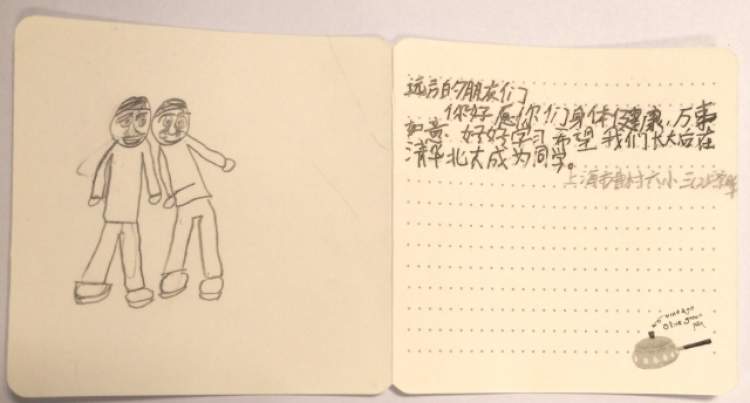 远方的朋友们
你好 愿你们身体健康，万事
如意。好好学习 希望我们长大后在
清华北大成为同学。
上海市 村六小 三(2)
olive green